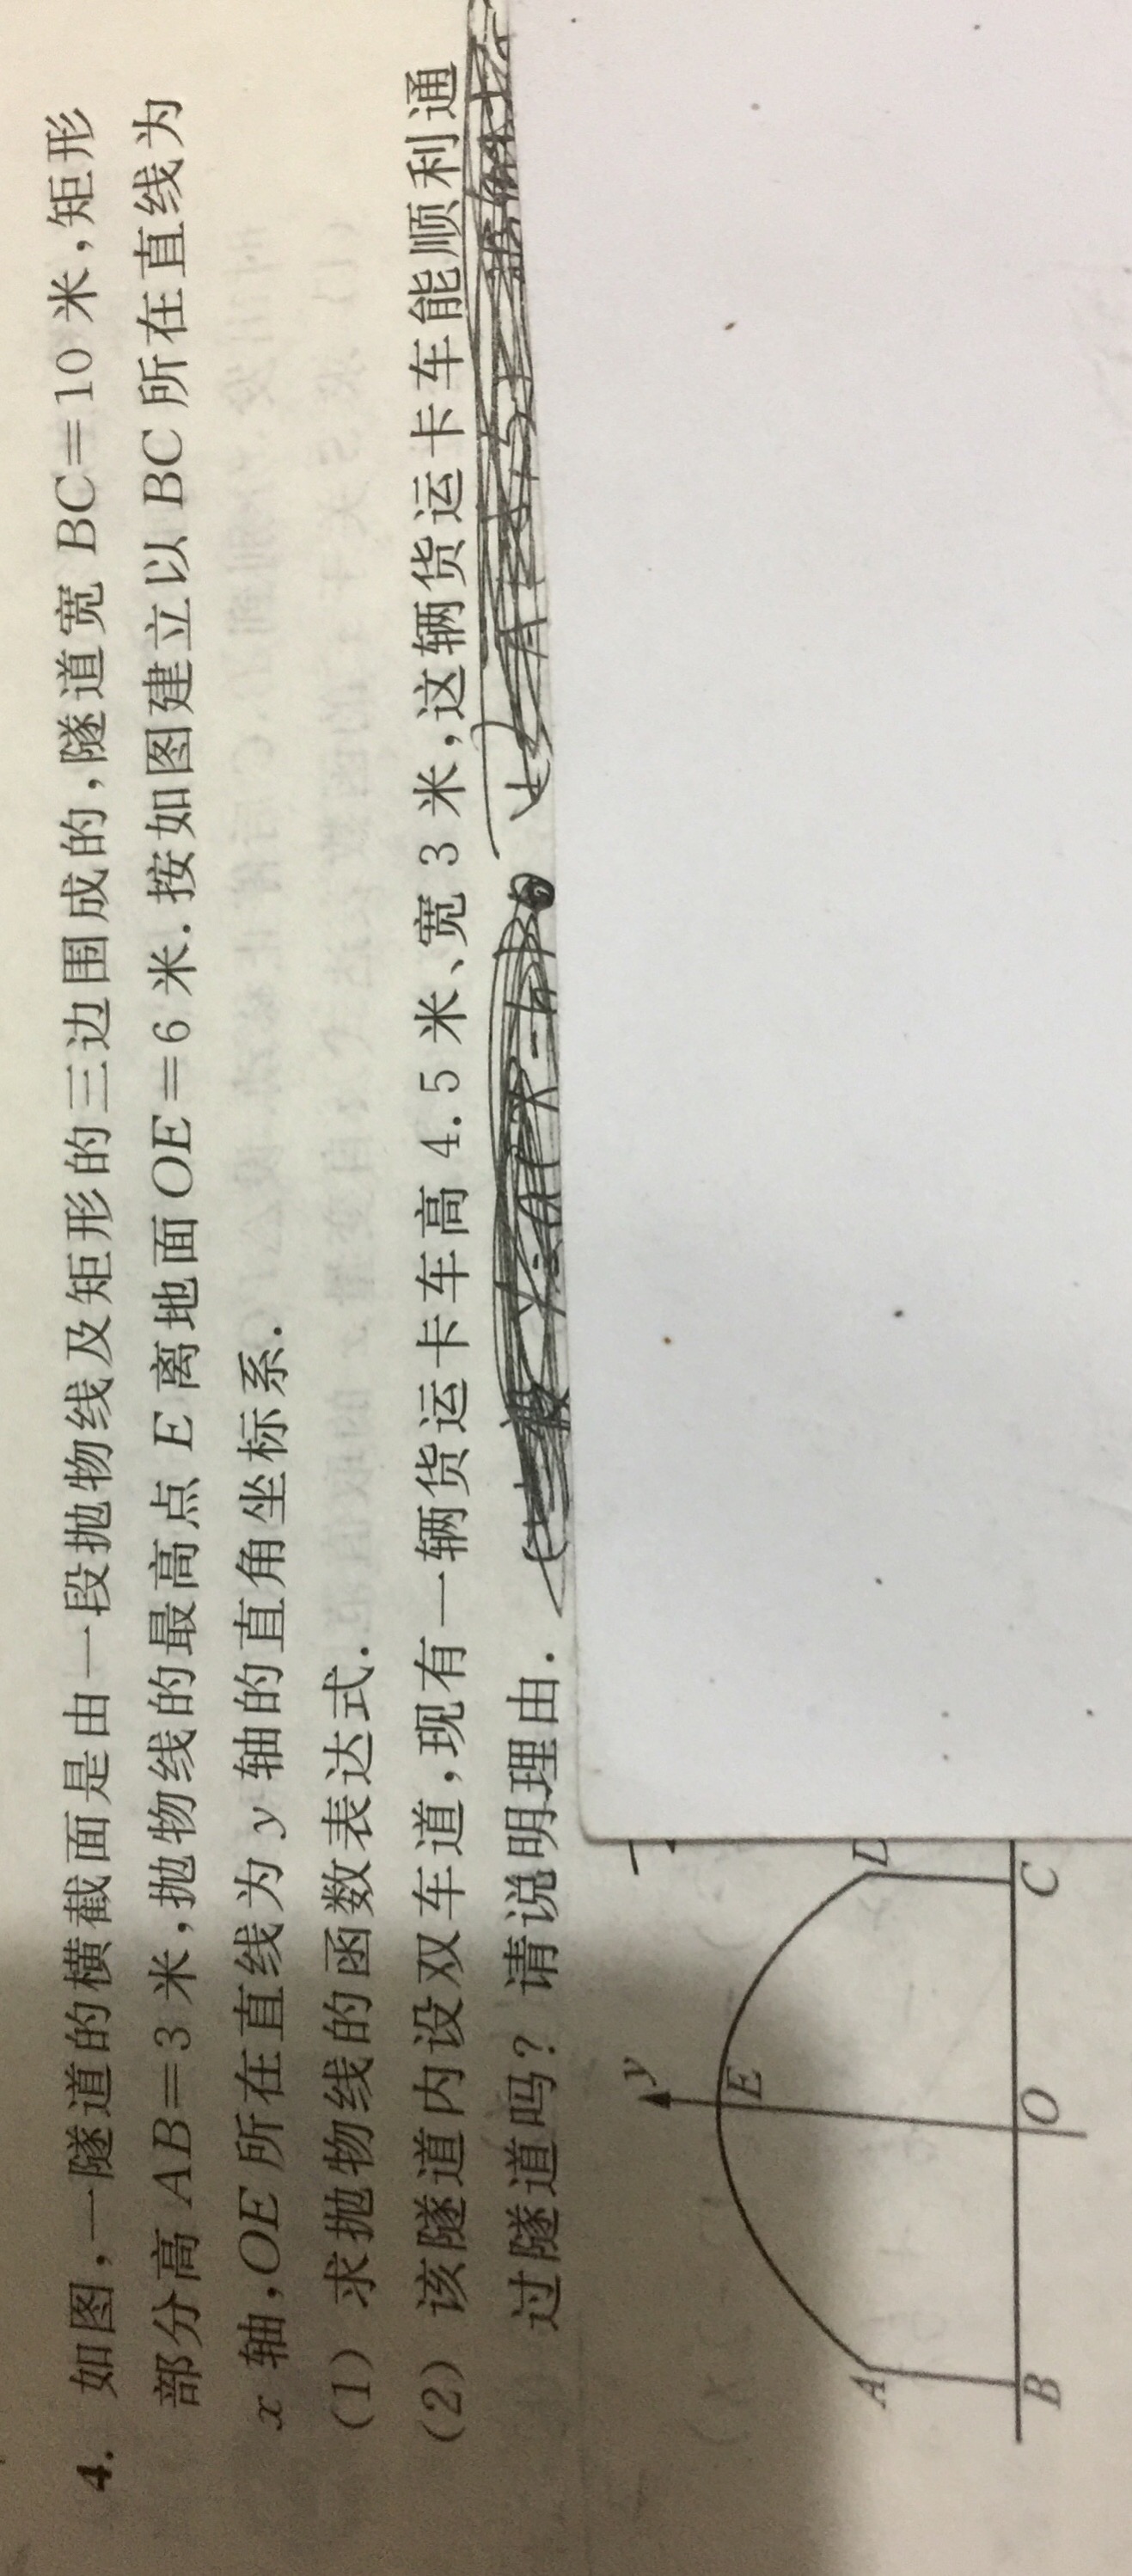 4. 如图,一隧道的横截面是由一段抛物线及矩形的三边围成的,隧道宽 BC=10 米,矩形
部分高 AB=3 米,抛物线的最高点 E 离地面 OE=6 米.按如图建立以 BC 所在直线为
x 轴,OE 所在直线为 y 轴的直角坐标系.
(1) 求抛物线的函数表达式.
(2) 该隧道内设双车道,现有一辆货运卡车高 4.5 米、宽 3 米,这辆货运卡车能顺利通
过隧道吗?请说明理由.
y
E
A
D
B
O
C